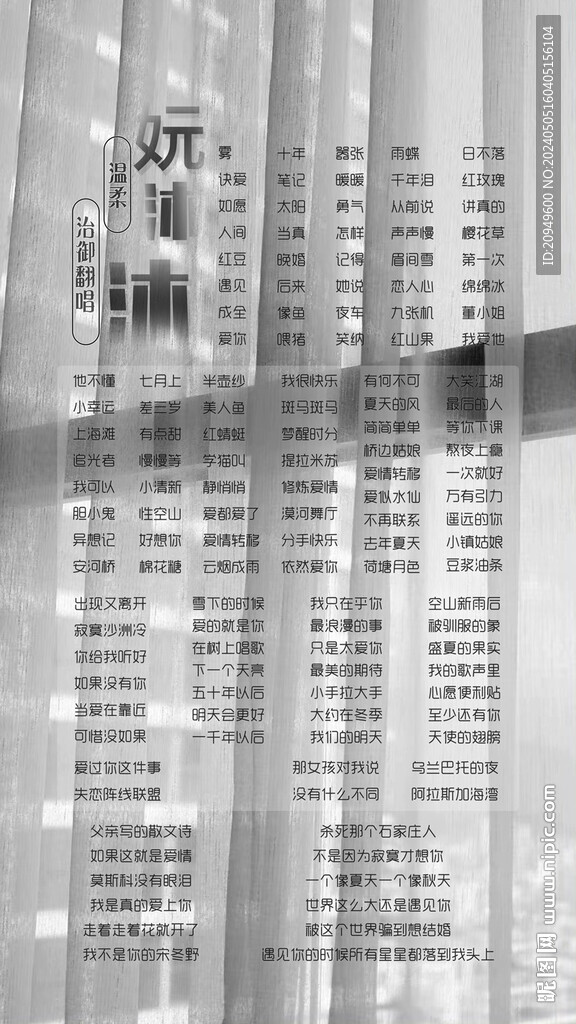 妧沐沐
温柔
治御翻唱
雾 十年 嚣张 雨蝶 日不落
诀爱 笔记 暖暖 千年泪 红玫瑰
如愿 太阳 勇气 从前说 讲真的
人间 当真 怎样 声声慢 樱花草
红豆 晚婚 记得 眉间雪 第一次
遇见 后来 她说 恋人心 绵绵冰
成全 像鱼 夜车 九张机 董小姐
爱你 喂猪 笑纳 红山果 我爱他
他不懂 七月上 半壶纱 我很快乐 有何不可 大笑江湖
小幸运 差三岁 美人鱼 斑马斑马 夏天的风 最后的人
上海滩 有点甜 红蜻蜓 梦醒时分 简简单单 等你下课
追光者 慢慢等 学猫叫 提拉米苏 桥边姑娘 熬夜上瘾
我可以 小清新 静悄悄 修炼爱情 爱情转移 一次就好
胆小鬼 性空山 爱都爱了 漠河舞厅 爱似水仙 万有引力
异想记 好想你 爱情转移 分手快乐 不再联系 遥远的你
安河桥 棉花糖 云烟成雨 依然爱你 去年夏天 小镇姑娘
荷塘月色 豆浆油条
出现又离开 雪下的时候 我只在乎你 空山新雨后
寂寞沙洲冷 爱的就是你 最浪漫的事 被驯服的象
你给我听好 在树上唱歌 只是太爱你 盛夏的果实
如果没有你 下一个天亮 最美的期待 我的歌声里
当爱在靠近 五十年以后 小手拉大手 心愿便利贴
可惜没如果 明天会更好 大约在冬季 至少还有你
一千年以后 我们的明天 天使的翅膀
爱过你这件事 那女孩对我说 乌兰巴托的夜
失恋阵线联盟 没有什么不同 阿拉斯加海湾
父亲写的散文诗 杀死那个石家庄人
如果这就是爱情 不是因为寂寞才想你
莫斯科没有眼泪 一个像夏天一个像秋天
我是真的爱上你 世界这么大还是遇见你
走着走着花就开了 被这个世界骗到想结婚
我不是你的宋冬野 遇见你的时候所有星星都落到我头上
ID:20949600 NO:20240505160405156104
昵图网 www.nipic.com